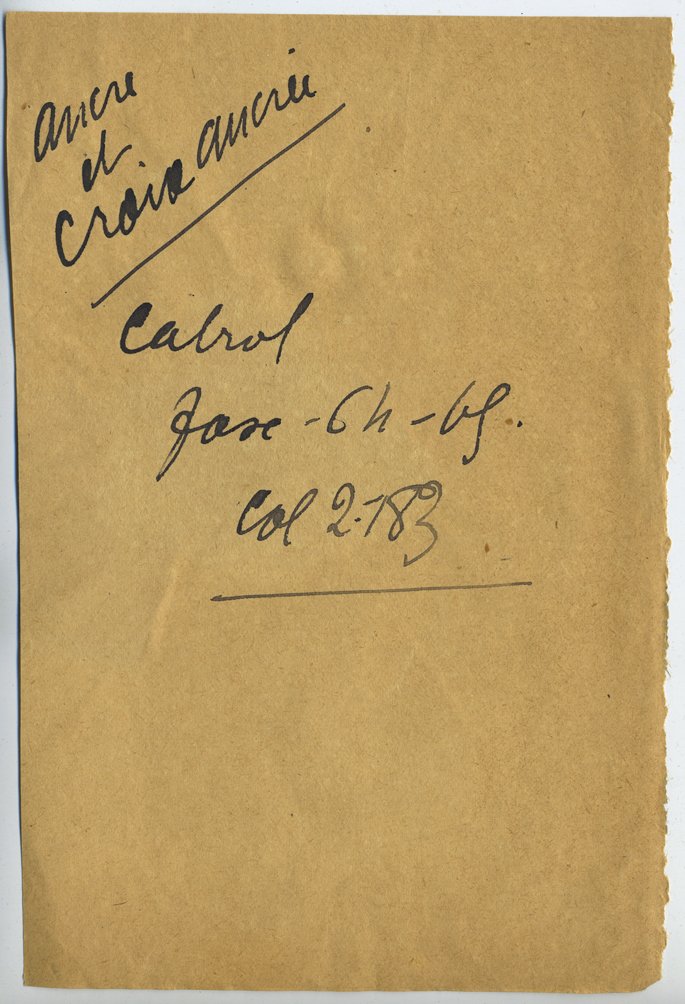 ancre
et
croix ancrée
Cabrol
fasc - 64 - 65.
Col 2.183